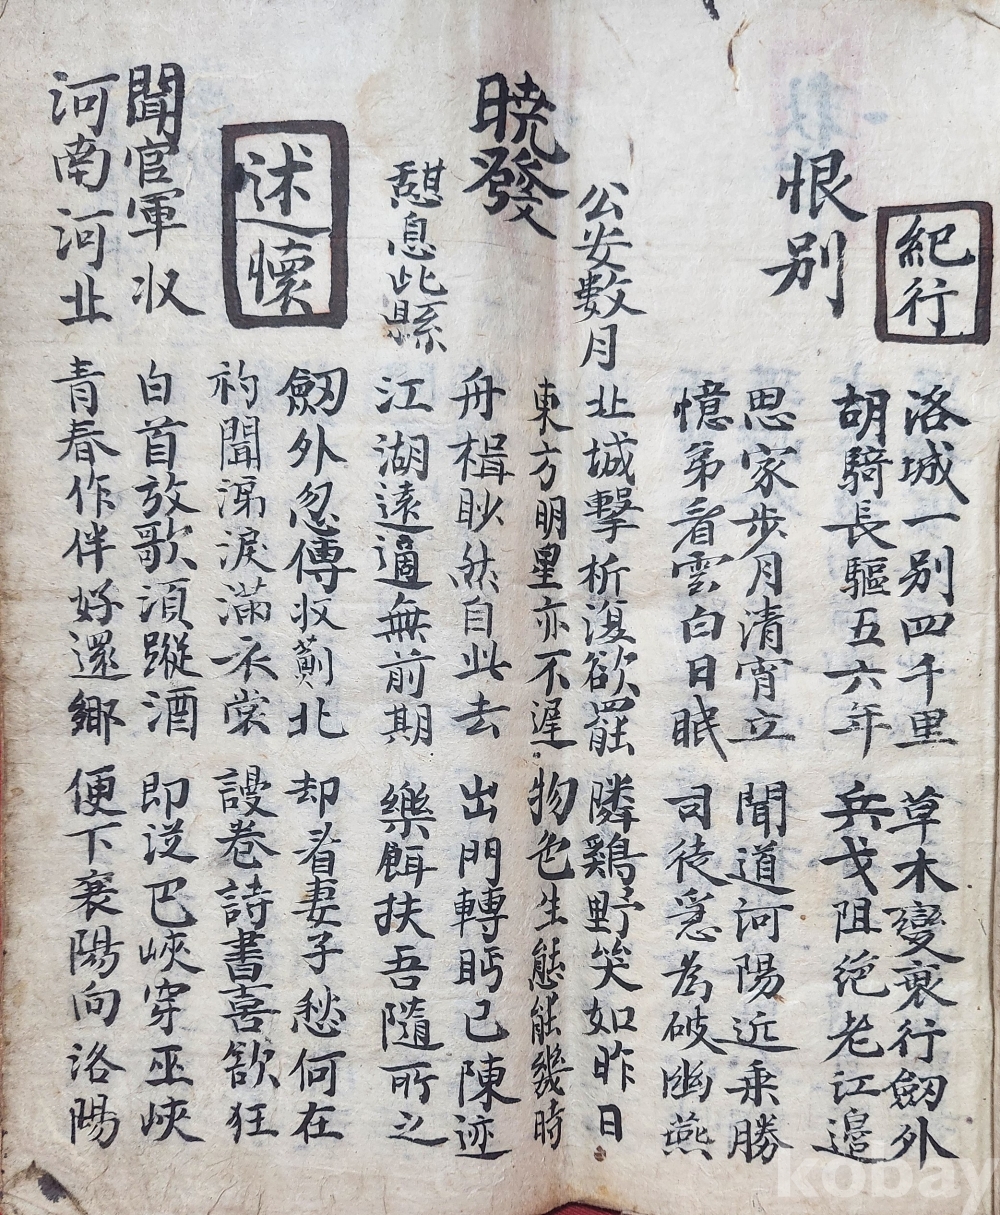 紀行
恨别
洛城一别四千里 草木變衰行劒外
胡騎長驅五六年 兵戈阻絶老江邉
思家步月清宵立 聞道河陽近乗勝
憶弟看雲白日眠 司徒急為破幽燕
暁發
公安數月
憇息此縣
北城擊析復欲罷 隣鷄野哭如昨日
東方明星亦不遲 物色生態能幾時
舟楫眇然自此去 出門轉眄已陳迹
江湖遠適無前期 藥餌扶吾隨所之
述懷
劒外忽傳收薊北 却看妻子愁何在
初聞涕淚滿衣裳 謾卷詩書喜欲狂
聞官軍収
河南河北
白首放歌須蹤酒 即従巴峽穿巫峽
青春作伴好還鄉 便下襄陽向洛陽
kobay